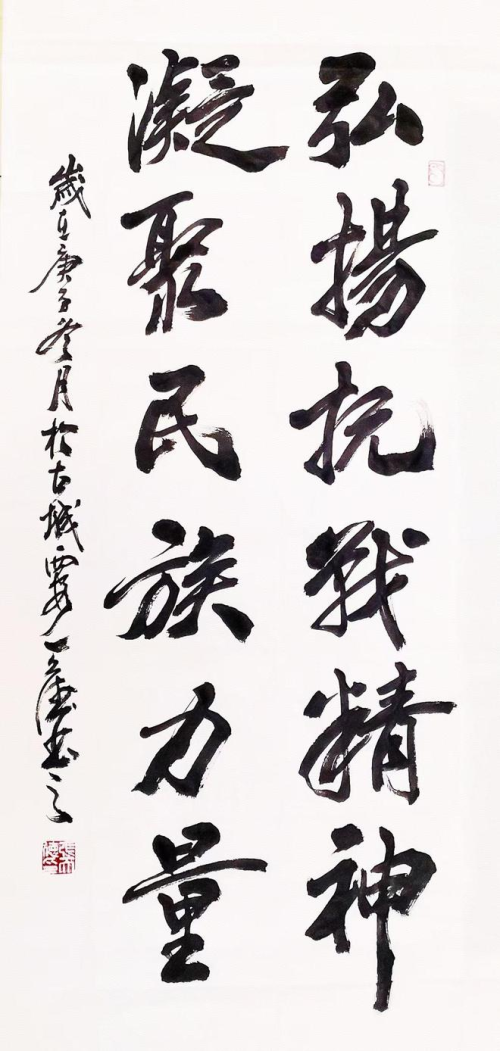 弘揚抗戰精神
凝聚民族力量
歲在庚子冬月於古城西安